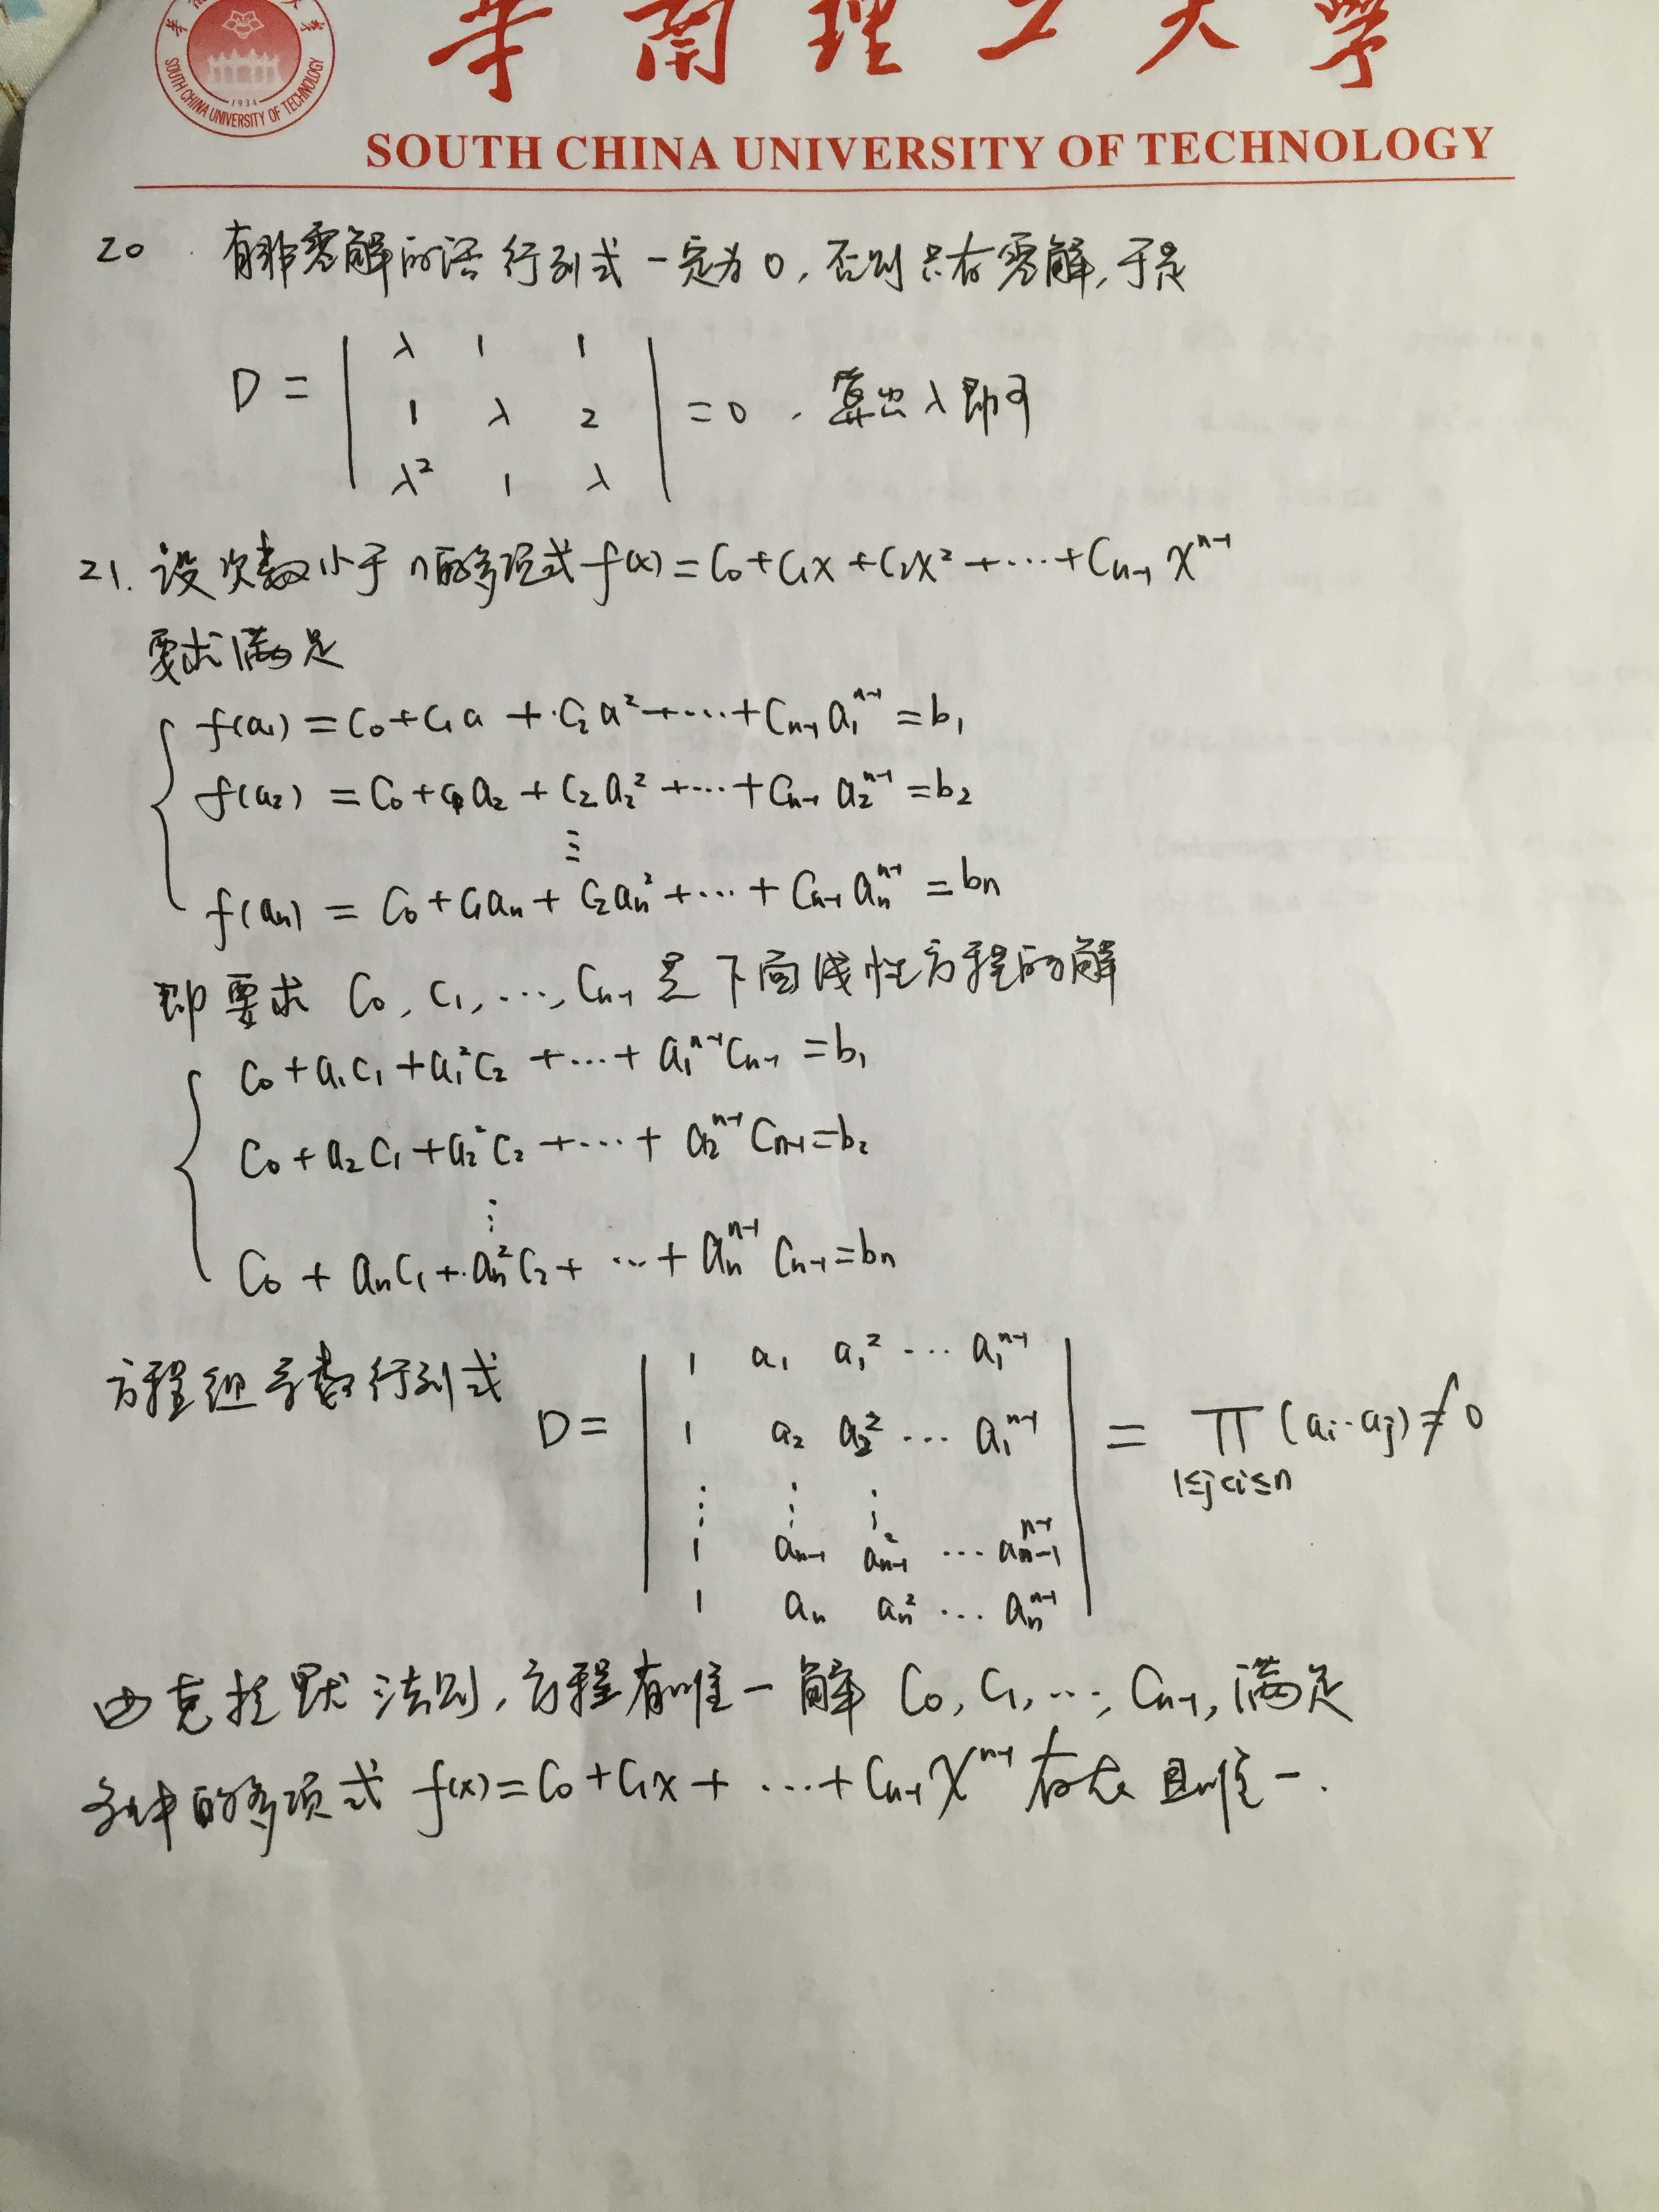 华南理工大学
SOUTH CHINA UNIVERSITY OF TECHNOLOGY
SOUTH CHINA UNIVERSITY OF TECHNOLOGY
1934
20. 有非零解的话行列式一定为0,否则只有零解,于是
D = | λ 1 1 |
| 1 λ 2 | = 0 . 算出λ即可
| λ² 1 λ |
21. 设次数小于n的多项式 f(x) = C₀ + C₁x + C₂x² + ⋯ + Cₙ₋₁xⁿ⁻¹
要求满足
f(a₁) = C₀ + C₁a + C₂a² + ⋯ + Cₙ₋₁a₁ⁿ⁻¹ = b₁
f(a₂) = C₀ + C₁a₂ + C₂a₂² + ⋯ + Cₙ₋₁a₂ⁿ⁻¹ = b₂
⋮
f(aₙ) = C₀ + C₁aₙ + C₂aₙ² + ⋯ + Cₙ₋₁aₙⁿ⁻¹ = bₙ
即要求 C₀, C₁, ⋯, Cₙ₋₁ 是下面线性方程的解
C₀ + a₁C₁ + a₁²C₂ + ⋯ + a₁ⁿ⁻¹Cₙ₋₁ = b₁
C₀ + a₂C₁ + a₂²C₂ + ⋯ + a₂ⁿ⁻¹Cₙ₋₁ = b₂
⋮
C₀ + aₙC₁ + aₙ²C₂ + ⋯ + aₙⁿ⁻¹Cₙ₋₁ = bₙ
方程组系数行列式
D = | 1 a₁ a₁² ⋯ a₁ⁿ⁻¹ |
| 1 a₂ a₂² ⋯ a₁ⁿ⁻¹ | = ∏ (aᵢ - aⱼ) ≠ 0
1≤j<i≤n
| ⋮ ⋮ ⋮ |
| 1 aₙ₋₁ aₙ₋₁² ⋯ aₙ₋₁ⁿ⁻¹ |
| 1 aₙ aₙ² ⋯ aₙⁿ⁻¹ |
由克拉默法则,方程有唯一解 C₀, C₁, ⋯, Cₙ₋₁, 满足
条件的多项式 f(x) = C₀ + C₁x + ⋯ + Cₙ₋₁xⁿ⁻¹ 存在且唯一.